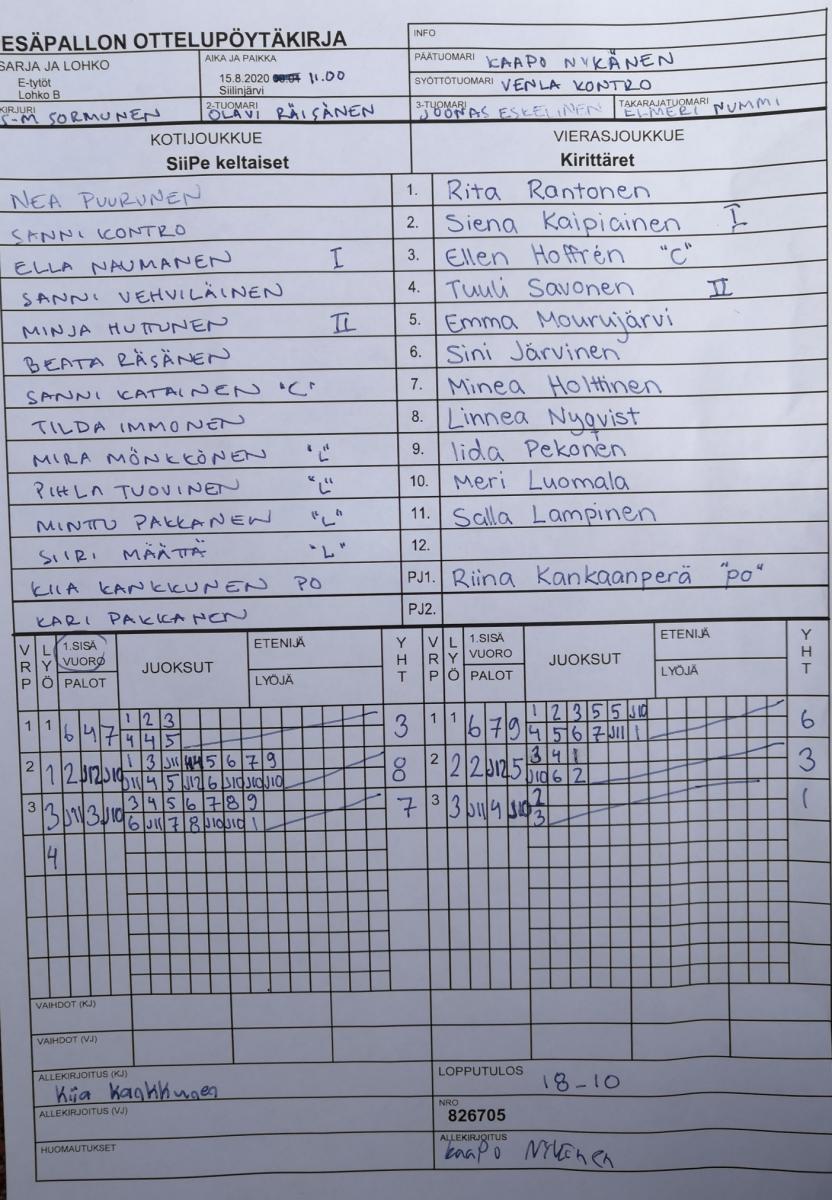 ESÄPALLON OTTELUPÖYTÄKIRJA
INFO
SARJA JA LOHKO
E-tytöt
Lohko B
AIKA JA PAIKKA
15.8.2020 11.00
Siilinjärvi
PÄÄTUOMARI KAAPO NYKÄNEN
SYÖTTÖTUOMARI VENLA KONTRO
KIRJURI
S-M SORMUNEN
2-TUOMARI
OLAVI RÄISÄNEN
3-TUOMARI
JOONAS ESKELINEN
TAKARAJATUOMARI
ELMERI NUMMI
KOTIJOUKKUE
SiiPe keltaiset
VIERASJOUKKUE
Kirittäret
NEA PUURUNEN 1. Rita Rantonen
SANNI KONTRO 2. Siena Kaipiainen I
ELLA NAUMANEN I 3. Ellen Hoffrén "C"
SANNI VEHVILÄINEN 4. Tuuli Savonen II
MINJA HUTTUNEN II 5. Emma Mourujärvi
BEATA RÄSÄNEN 6. Sini Järvinen
SANNI KATAINEN "C" 7. Minea Holttinen
TILDA IMMONEN 8. Linnea Nyqvist
MIRA MÖNKKÖNEN "L" 9. Iida Pekonen
PIHLA TUOVINEN "L" 10. Meri Luomala
MINTTU PAKKANEN "L" 11. Salla Lampinen
SIIRI MÄÄTTÄ "L" 12.
KIIA KANKKUNEN PO PJ1. Riina Kankaanperä "po"
KARI PAKKANEN PJ2.
VRP LYÖ 1.SISÄ VUORO PALOT JUOKSUT ETENIJÄ LYÖJÄ YHT VRP LYÖ 1.SISÄ VUORO PALOT JUOKSUT ETENIJÄ LYÖJÄ YHT
1 1 6 4 7 1 2 3 3 1 1 6 7 9 1 2 3 5 5 J10 6
4 4 5 4 5 6 7 J11 1
2 1 2 J12 J10 1 3 J11 5 6 7 9 8 2 2 2 J12 5 3 4 1 3
J11 4 5 J12 6 J10 J10 J10 J10 6 2
3 3 J11 3 J10 3 4 5 6 7 8 9 7 3 3 J11 4 J10 2 1
6 J11 7 8 J10 J10 1 3
4
VAIHDOT (KJ)
VAIHDOT (VJ)
ALLEKIRJOITUS (KJ)
Kiia Kankkunen
LOPPUTULOS
18-10
ALLEKIRJOITUS (VJ)
NRO
826705
HUOMAUTUKSET
ALLEKIRJOITUS
Kaapo Nykänen